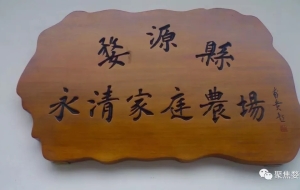 婺源縣
永清家庭農場
聚焦婺